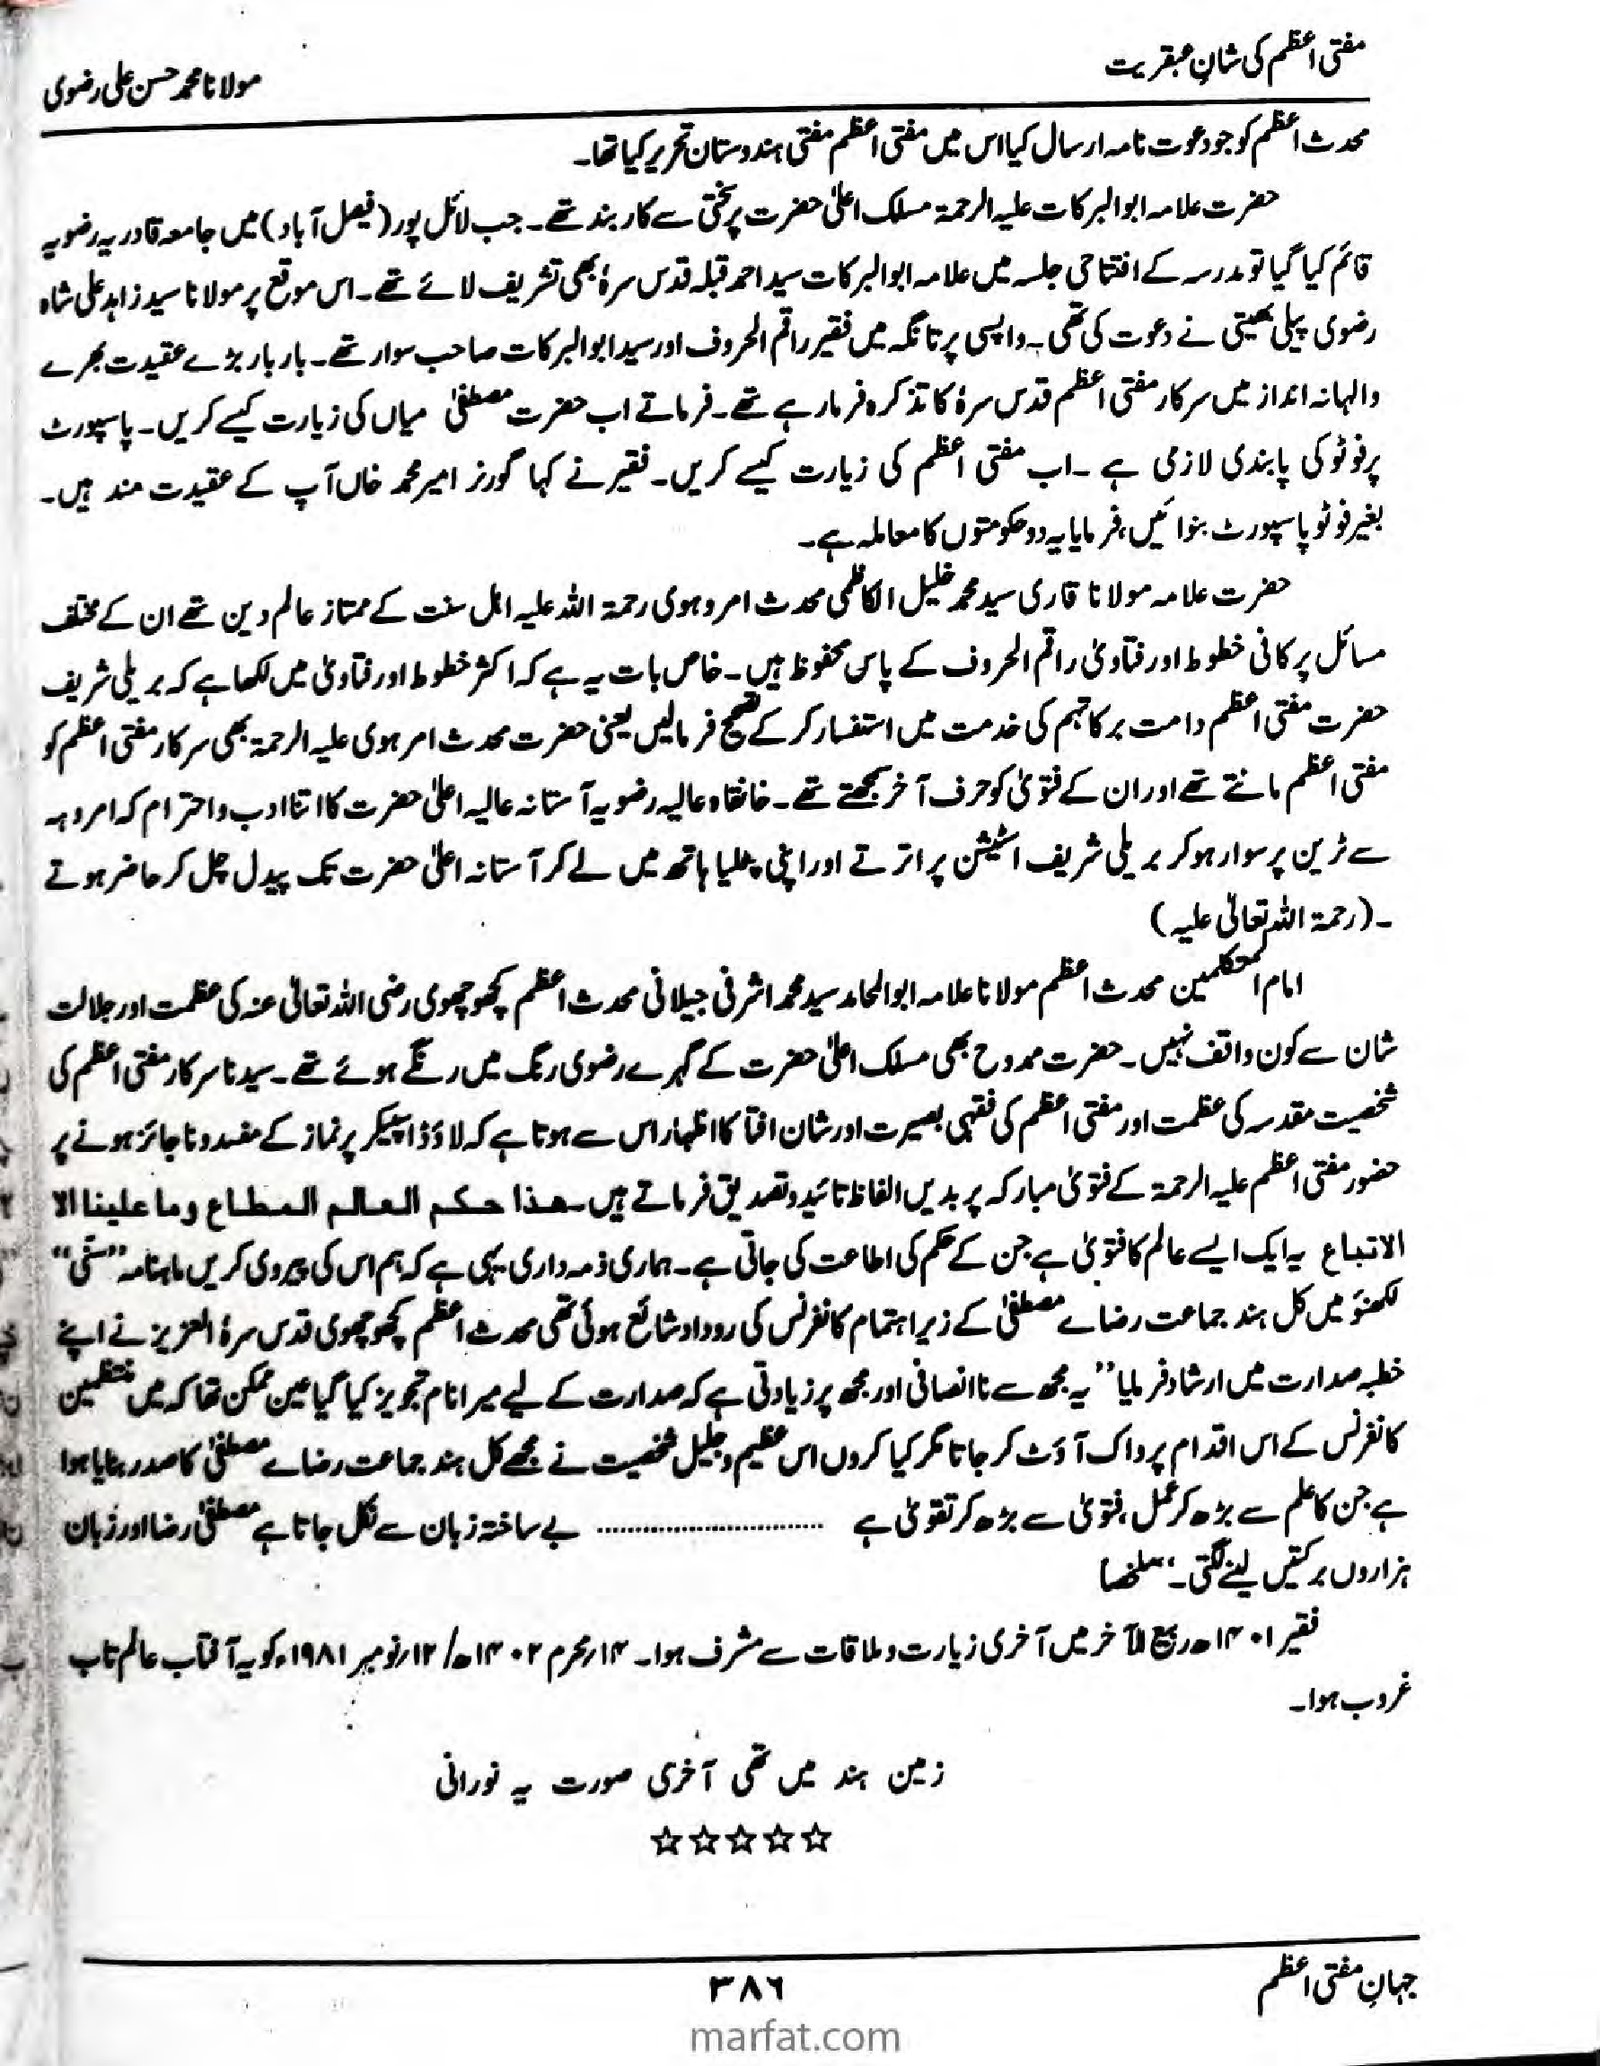 مفتی اعظم کی شانِ عبقریت
مولانا محمد حسن علی رضوی
محدث اعظم کو جو دعوت نامہ ارسال کیا اس میں مفتی اعظم مفتی ہندوستان تحریر کیا تھا۔
حضرت علامہ ابوالبرکات علیہ الرحمۃ مسلک اعلیٰ حضرت پر سختی سے کاربند تھے۔ جب لائل پور (فیصل آباد) میں جامعہ قادریہ رضویہ
قائم کیا گیا تو مدرسہ کے افتتاحی جلسہ میں علامہ ابوالبرکات سید احمد قبلہ قدس سرہٗ بھی تشریف لائے تھے۔ اس موقع پر مولانا سید زاہد علی شاہ
رضوی پیلی بھیتی نے دعوت کی تھی۔ واپسی پر تانگہ میں فقیر راقم الحروف اور سید ابوالبرکات صاحب سوار تھے۔ بار بار بڑے عقیدت بھرے
والہانہ انداز میں سرکار مفتی اعظم قدس سرہٗ کا تذکرہ فرما رہے تھے۔ فرماتے اب حضرت مصطفیٰ میاں کی زیارت کیسے کریں۔ پاسپورٹ
پر فوٹو کی پابندی لازمی ہے۔ اب مفتی اعظم کی زیارت کیسے کریں۔ فقیر نے کہا گورنر امیر محمد خاں آپ کے عقیدت مند ہیں۔
بغیر فوٹو پاسپورٹ بنوائیں، فرمایا یہ دو حکومتوں کا معاملہ ہے۔
حضرت علامہ مولانا قاری سید محمد خلیل الکاظمی محدث امروہوی رحمۃ اللہ علیہ اہل سنت کے ممتاز عالم دین تھے ان کے مختلف
مسائل پر کافی خطوط اور فتاویٰ راقم الحروف کے پاس محفوظ ہیں۔ خاص بات یہ ہے کہ اکثر خطوط اور فتاویٰ میں لکھا ہے کہ بریلی شریف
حضرت مفتی اعظم دامت برکاتہم کی خدمت میں استفسار کر کے تصحیح فرمالیں یعنی حضرت محدث امرہوی علیہ الرحمۃ بھی سرکار مفتی اعظم کو
مفتی اعظم مانتے تھے اور ان کے فتویٰ کو حرف آخر سمجھتے تھے۔ خانقاہ عالیہ رضویہ آستانہ عالیہ اعلیٰ حضرت کا اتنا ادب و احترام کہ امروہہ
سے ٹرین پر سوار ہو کر بریلی شریف اسٹیشن پر اترتے اور اپنی پٹلیا ہاتھ میں لے کر آستانہ اعلیٰ حضرت تک پیدل چل کر حاضر ہوتے
۔(رحمۃ اللہ تعالیٰ علیہ)
امام المتکلمین محدث اعظم مولانا علامہ ابوالمحامد سید محمد اشرفی جیلانی محدث اعظم کچھوچھوی رضی اللہ تعالیٰ عنہ کی عظمت اور جلالت
شان سے کون واقف نہیں۔ حضرت ممدوح بھی مسلک اعلیٰ حضرت کے گہرے رضوی رنگ میں رنگے ہوئے تھے۔ سیدنا سرکار مفتی اعظم کی
شخصیت مقدسہ کی عظمت اور مفتی اعظم کی فقہی بصیرت اور شان افتا کا اظہار اس سے ہوتا ہے کہ لاؤڈ اسپیکر پر نماز کے مفسد و ناجائز ہونے پر
حضور مفتی اعظم علیہ الرحمۃ کے فتویٰ مبارکہ پر بدیں الفاظ تائید و تصدیق فرماتے ہیں۔ ھذا حکم العالم المطاع وما علینا الا
الاتباع یہ ایک ایسے عالم کا فتویٰ ہے جن کے حکم کی اطاعت کی جاتی ہے۔ ہماری ذمہ داری یہی ہے کہ ہم اس کی پیروی کریں ماہنامہ ’’سنّی‘‘
لکھنؤ میں کل ہند جماعت رضاے مصطفیٰ کے زیر اہتمام کانفرنس کی روداد شائع ہوئی تھی محدث اعظم کچھوچھوی قدس سرہٗ العزیز نے اپنے
خطبہ صدارت میں ارشاد فرمایا ’’یہ مجھ سے ناانصافی اور مجھ پر زیادتی ہے کہ صدارت کے لیے میرا نام تجویز کیا گیا عین ممکن تھا کہ میں منتظمین
کانفرنس کے اس اقدام پر واک آؤٹ کر جاتا مگر کیا کروں اس عظیم و جلیل شخصیت نے مجھے کل ہند جماعت رضاے مصطفیٰ کا صدر بنایا ہوا
ہے جن کا علم سے بڑھ کر عمل، فتویٰ سے بڑھ کر تقویٰ ہے .............................. بے ساختہ زبان سے نکل جاتا ہے مصطفیٰ رضا اور زبان
ہزاروں برکتیں لینے لگتی۔‘‘ ملخصا
فقیر ۱۴۰۱ھ ربیع الآخر میں آخری زیارت و ملاقات سے مشرف ہوا۔ ۱۴/ محرم ۱۴۰۲ھ/ ۱۲/ نومبر ۱۹۸۱ء کو یہ آفتاب عالم تاب
غروب ہوا۔
زمین ہند میں تھی آخری صورت یہ نورانی
☆☆☆☆☆
جہانِ مفتی اعظم
۳۸۶
marfat.com